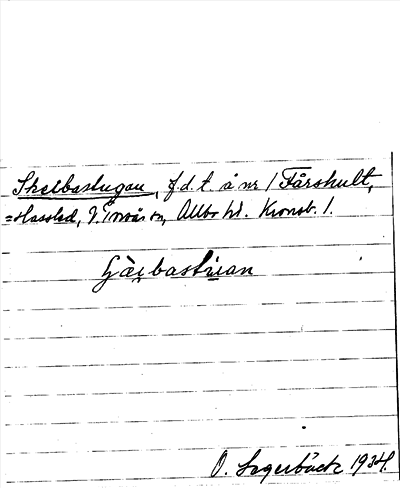 Skelbastugan, f.d.t. å nr 1 Fårshult,
=Hassled, V. Torsås sn, Allbo hd. Kronob. l.
O. Lagerbäck 1934.